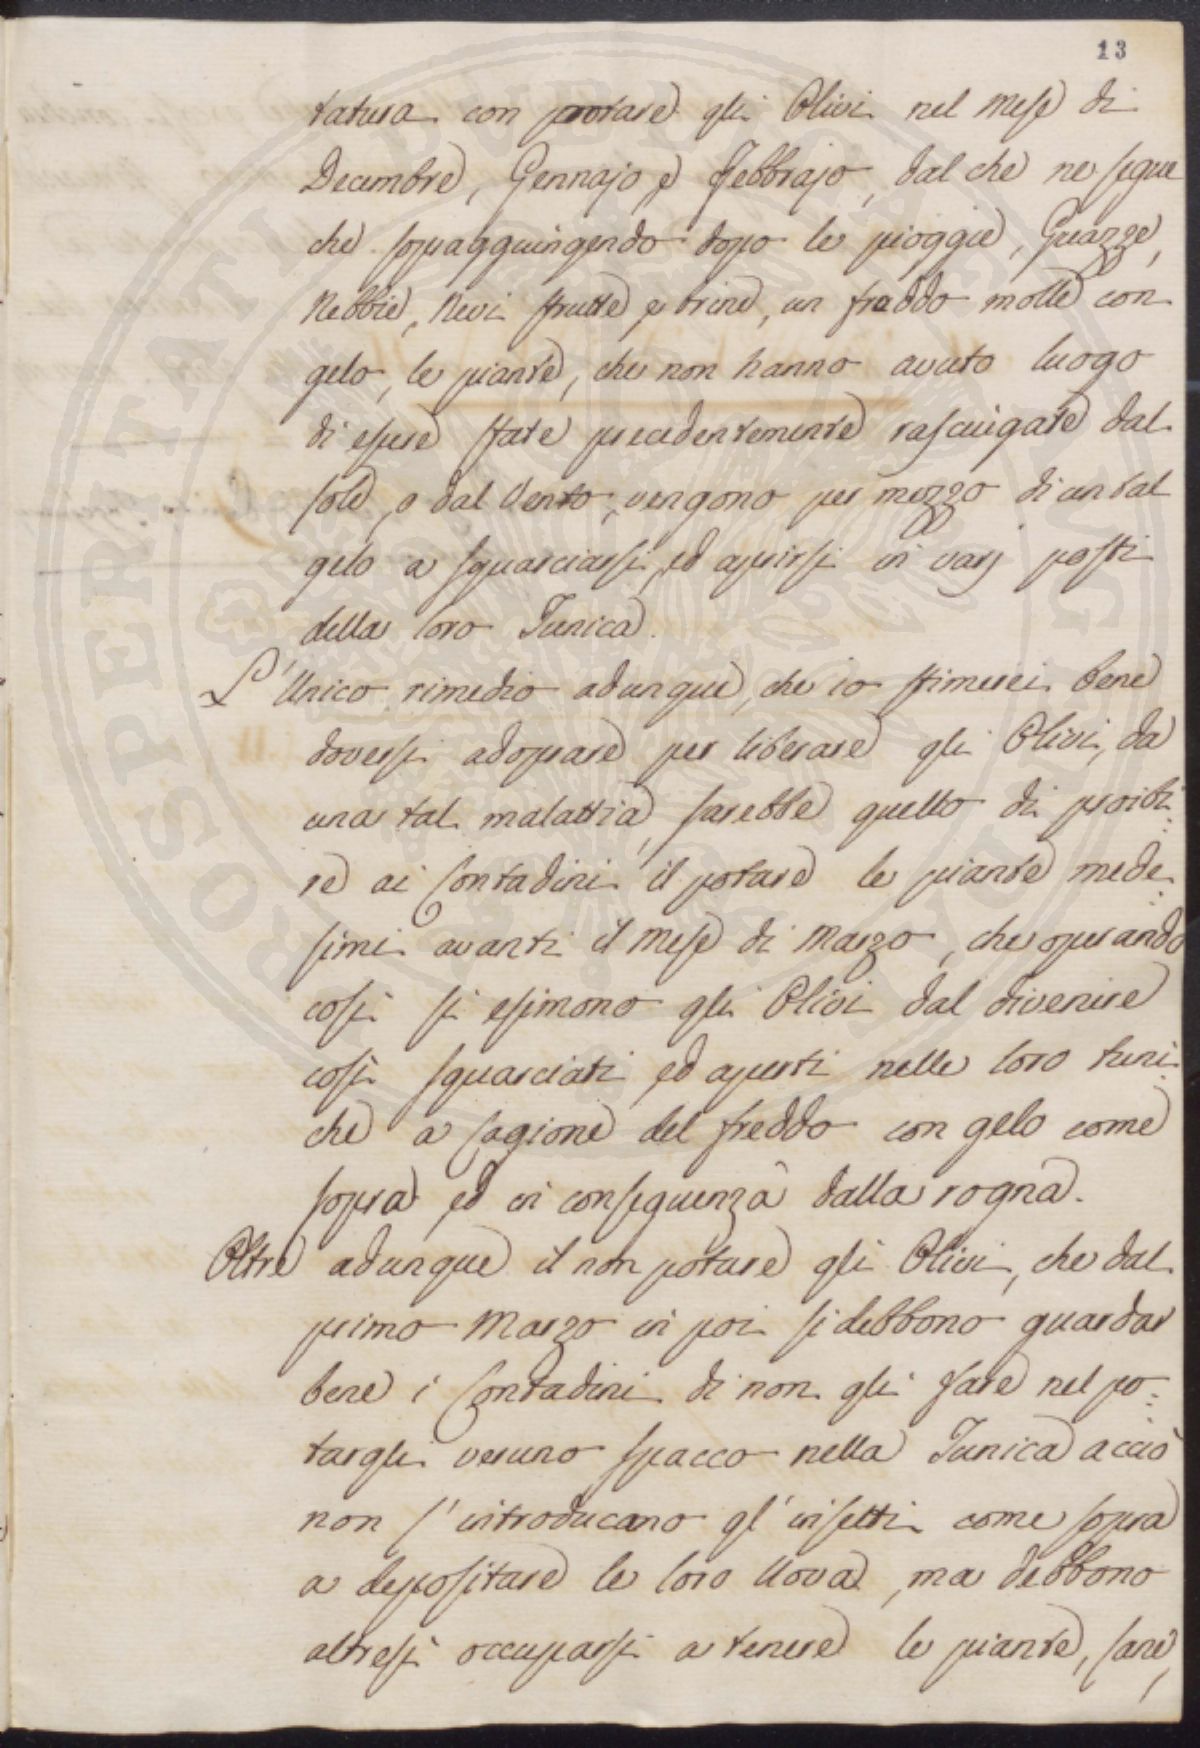 13
tatura con potare gli Olivi nel Mese di
Decembre, Gennajo, e Febbrajo, dal che ne segue
che sopraggiungendo dopo le pioggie, Guazze,
Nebbie, Nevi strutte, e brine, un freddo molle con
gelo, le piante, che non hanno avuto luogo
di essere state precedentemente rasciugate dal
sole, o dal Vento, vengono per mezzo di un tal
gelo a squarciarsi, ed aprirsi in varj posti
della loro Tunica.
L'Unico rimedio adunque, che io stimerei bene
doversi adoprare per liberare gli Olivi, da
una tal malattia, sarebbe quello di proibi:
re ai Contadini il potare le piante mede:
simi avanti il Mese di Marzo, che operando
così si esimono gli Olivi dal divenire
così squarciati, ed aperti nelle loro tuni:
che a cagione del freddo con gelo come
sopra ed in conseguenza dalla rogna.
Oltre adunque il non potare gli Olivi, che dal
primo Marzo in poi si debbono guardar
bene i Contadini di non gli fare nel po:
targli veruno spacco nella Tunica acciò
non s'introducano gl'insetti come sopra
a depositare le loro Uova, ma debbono
altresì occuparsi a tenere le piante, sane,
PROSPERITATI PUBLICAE AUGENDAE